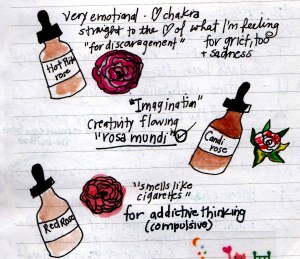 very emotional - ♡ chakra
straight to the ♡ of what I'm feeling
"for discouragement"
for grief, too
+ sadness
Hot Pink
rose
"Imagination"
Creativity flowing
"rosa mundi"
Candi
rose
"smells like
cigarettes"
Red Rose
for addictive thinking
(compulsive)